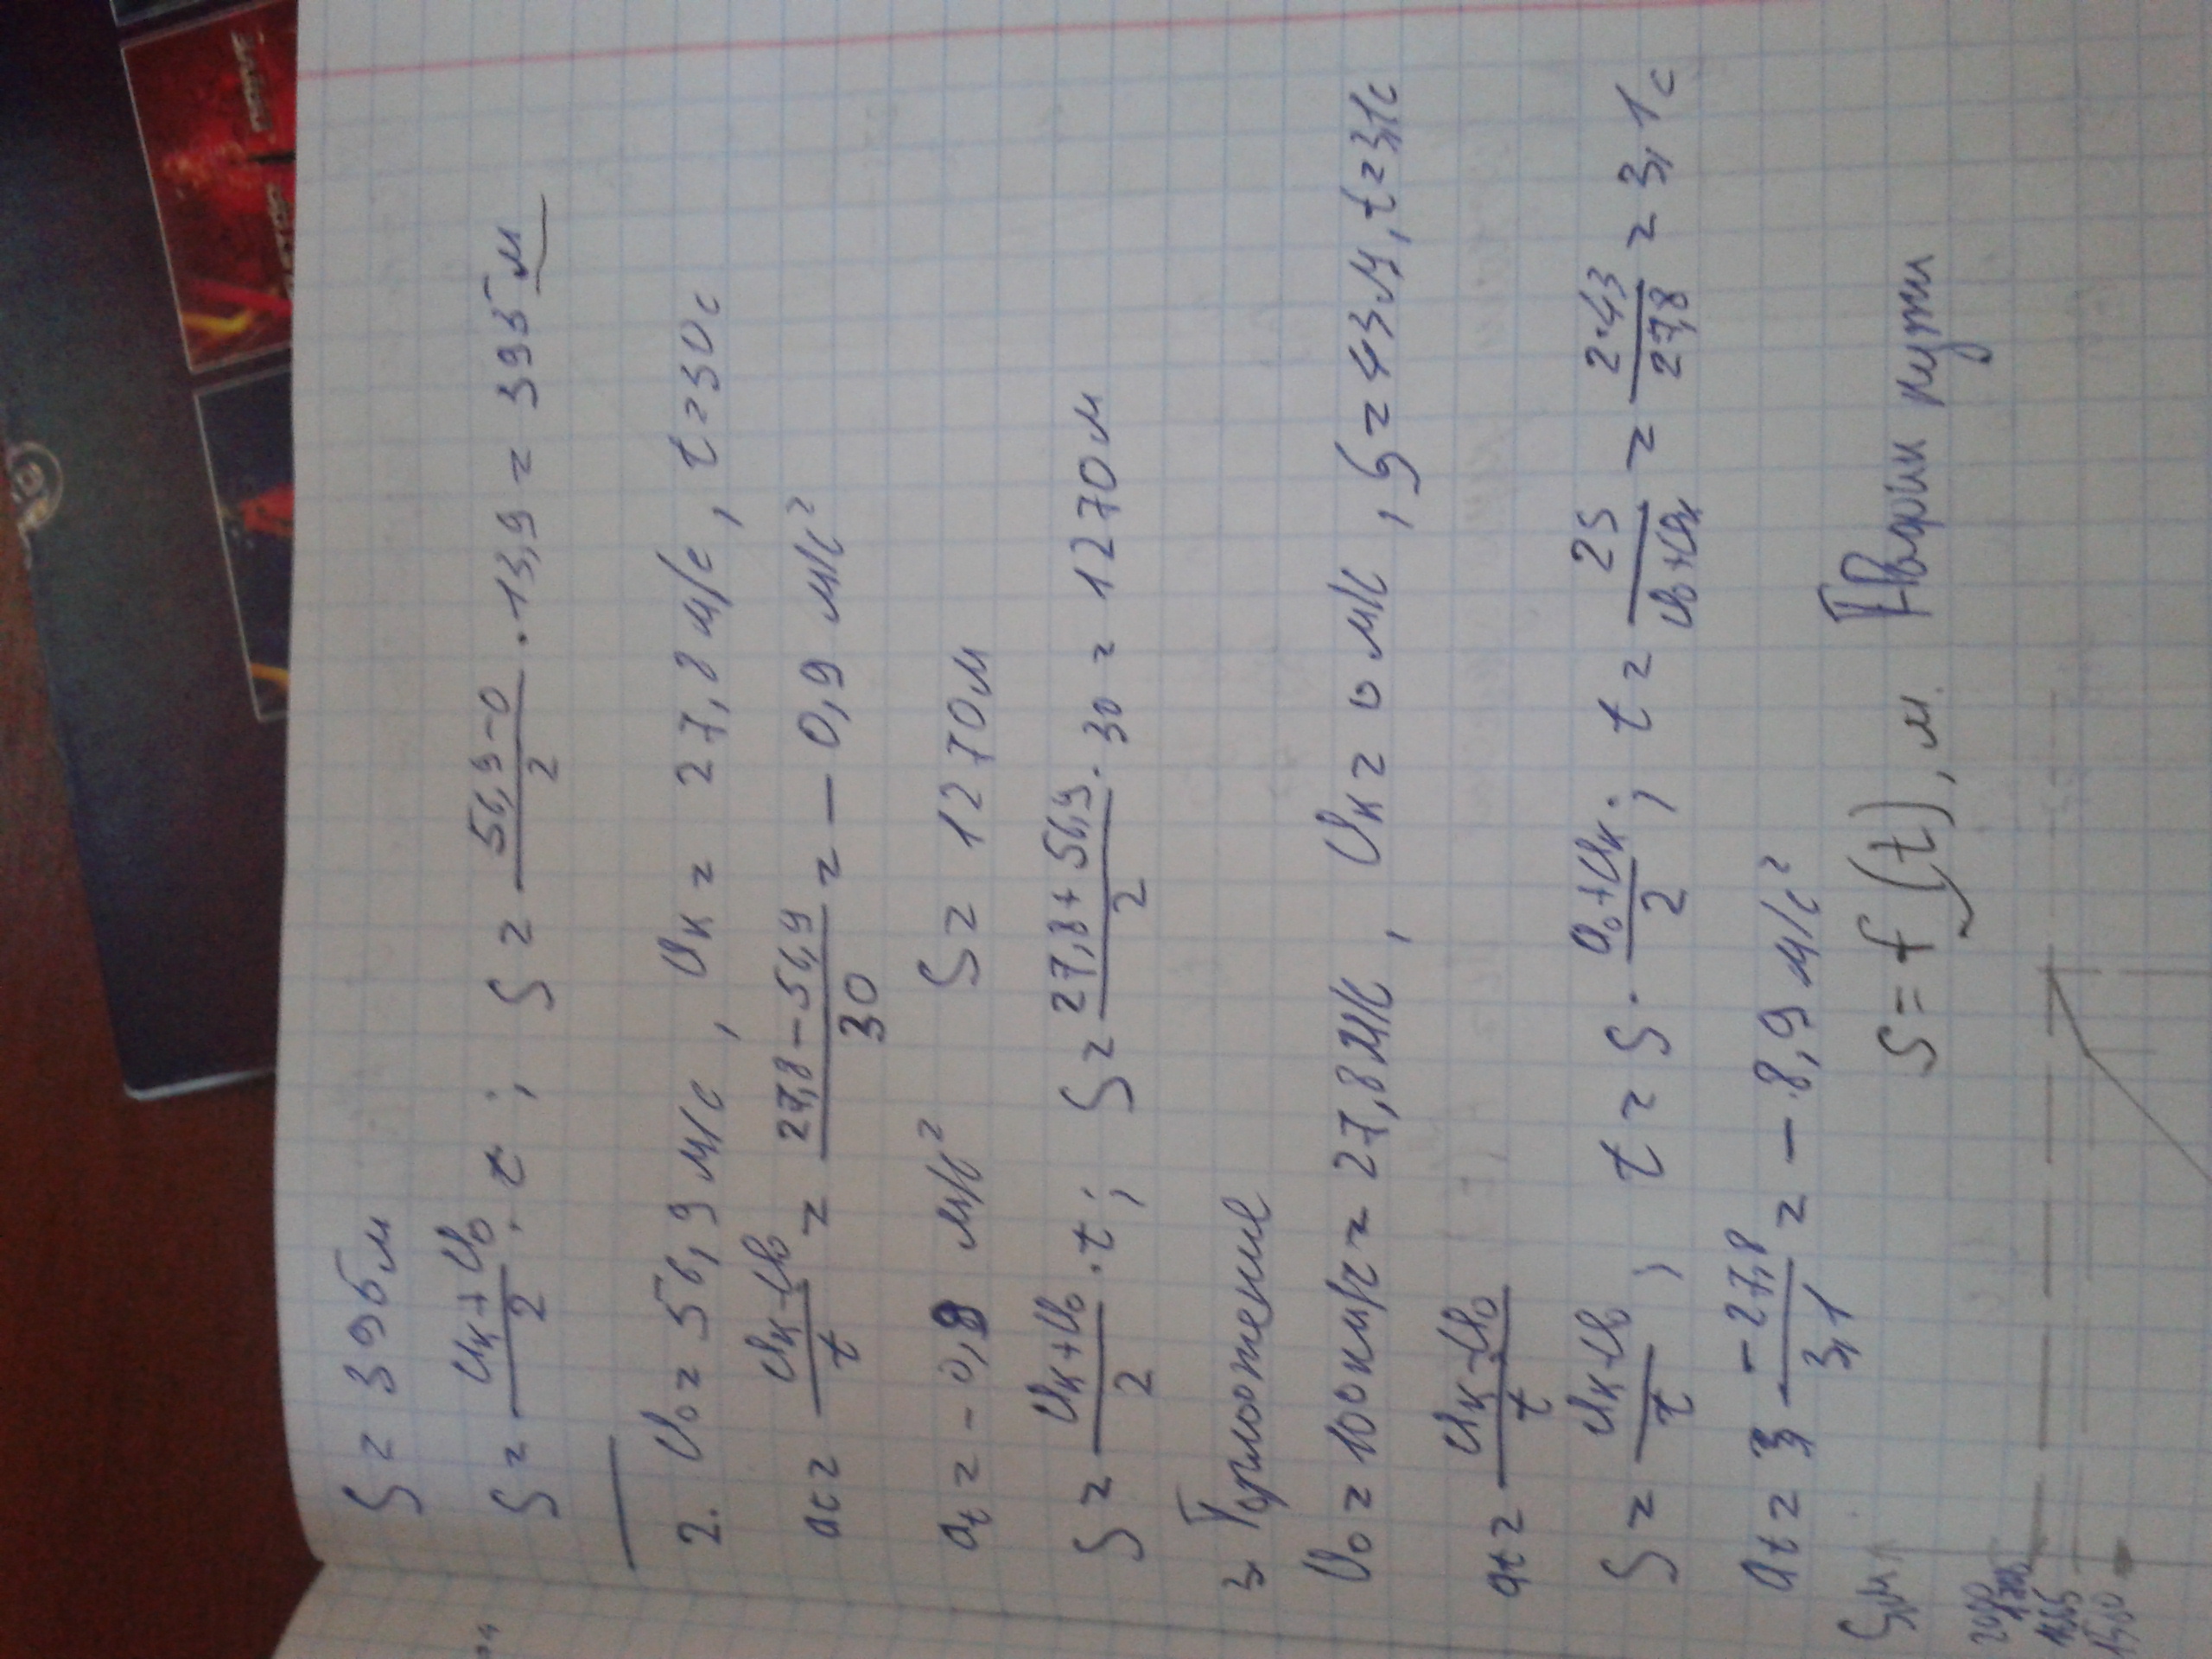 S = 395 м
S = (Uк+U0)/2 · t ; S = (56,9-0)/2 · 13,9 = 395 м
2. U0 = 56,9 м/с , Uк = 27,8 м/с , t = 30 с
at = (Uк-U0)/t = (27,8-56,9)/30 = - 0,9 м/с²
at = - 0,9 м/с² S = 1270 м
S = (Uк+U0)/2 · t ; S = (27,8+56,9)/2 · 30 = 1270 м
3 Торможение
U0 = 100 км/ч = 27,8 м/с , Uк = 0 м/с , S = 43 м, t = 3,1 с
at = (Uк-U0)/t
S = (Uк+U0)/t , t = S · (U0+Uк)/2 ; t = 2S/(U0+Uк) = 2·43/27,8 = 3,1 с
at = -27,8/3,1 = - 8,9 м/с²
S = f (t), м пути
S,м